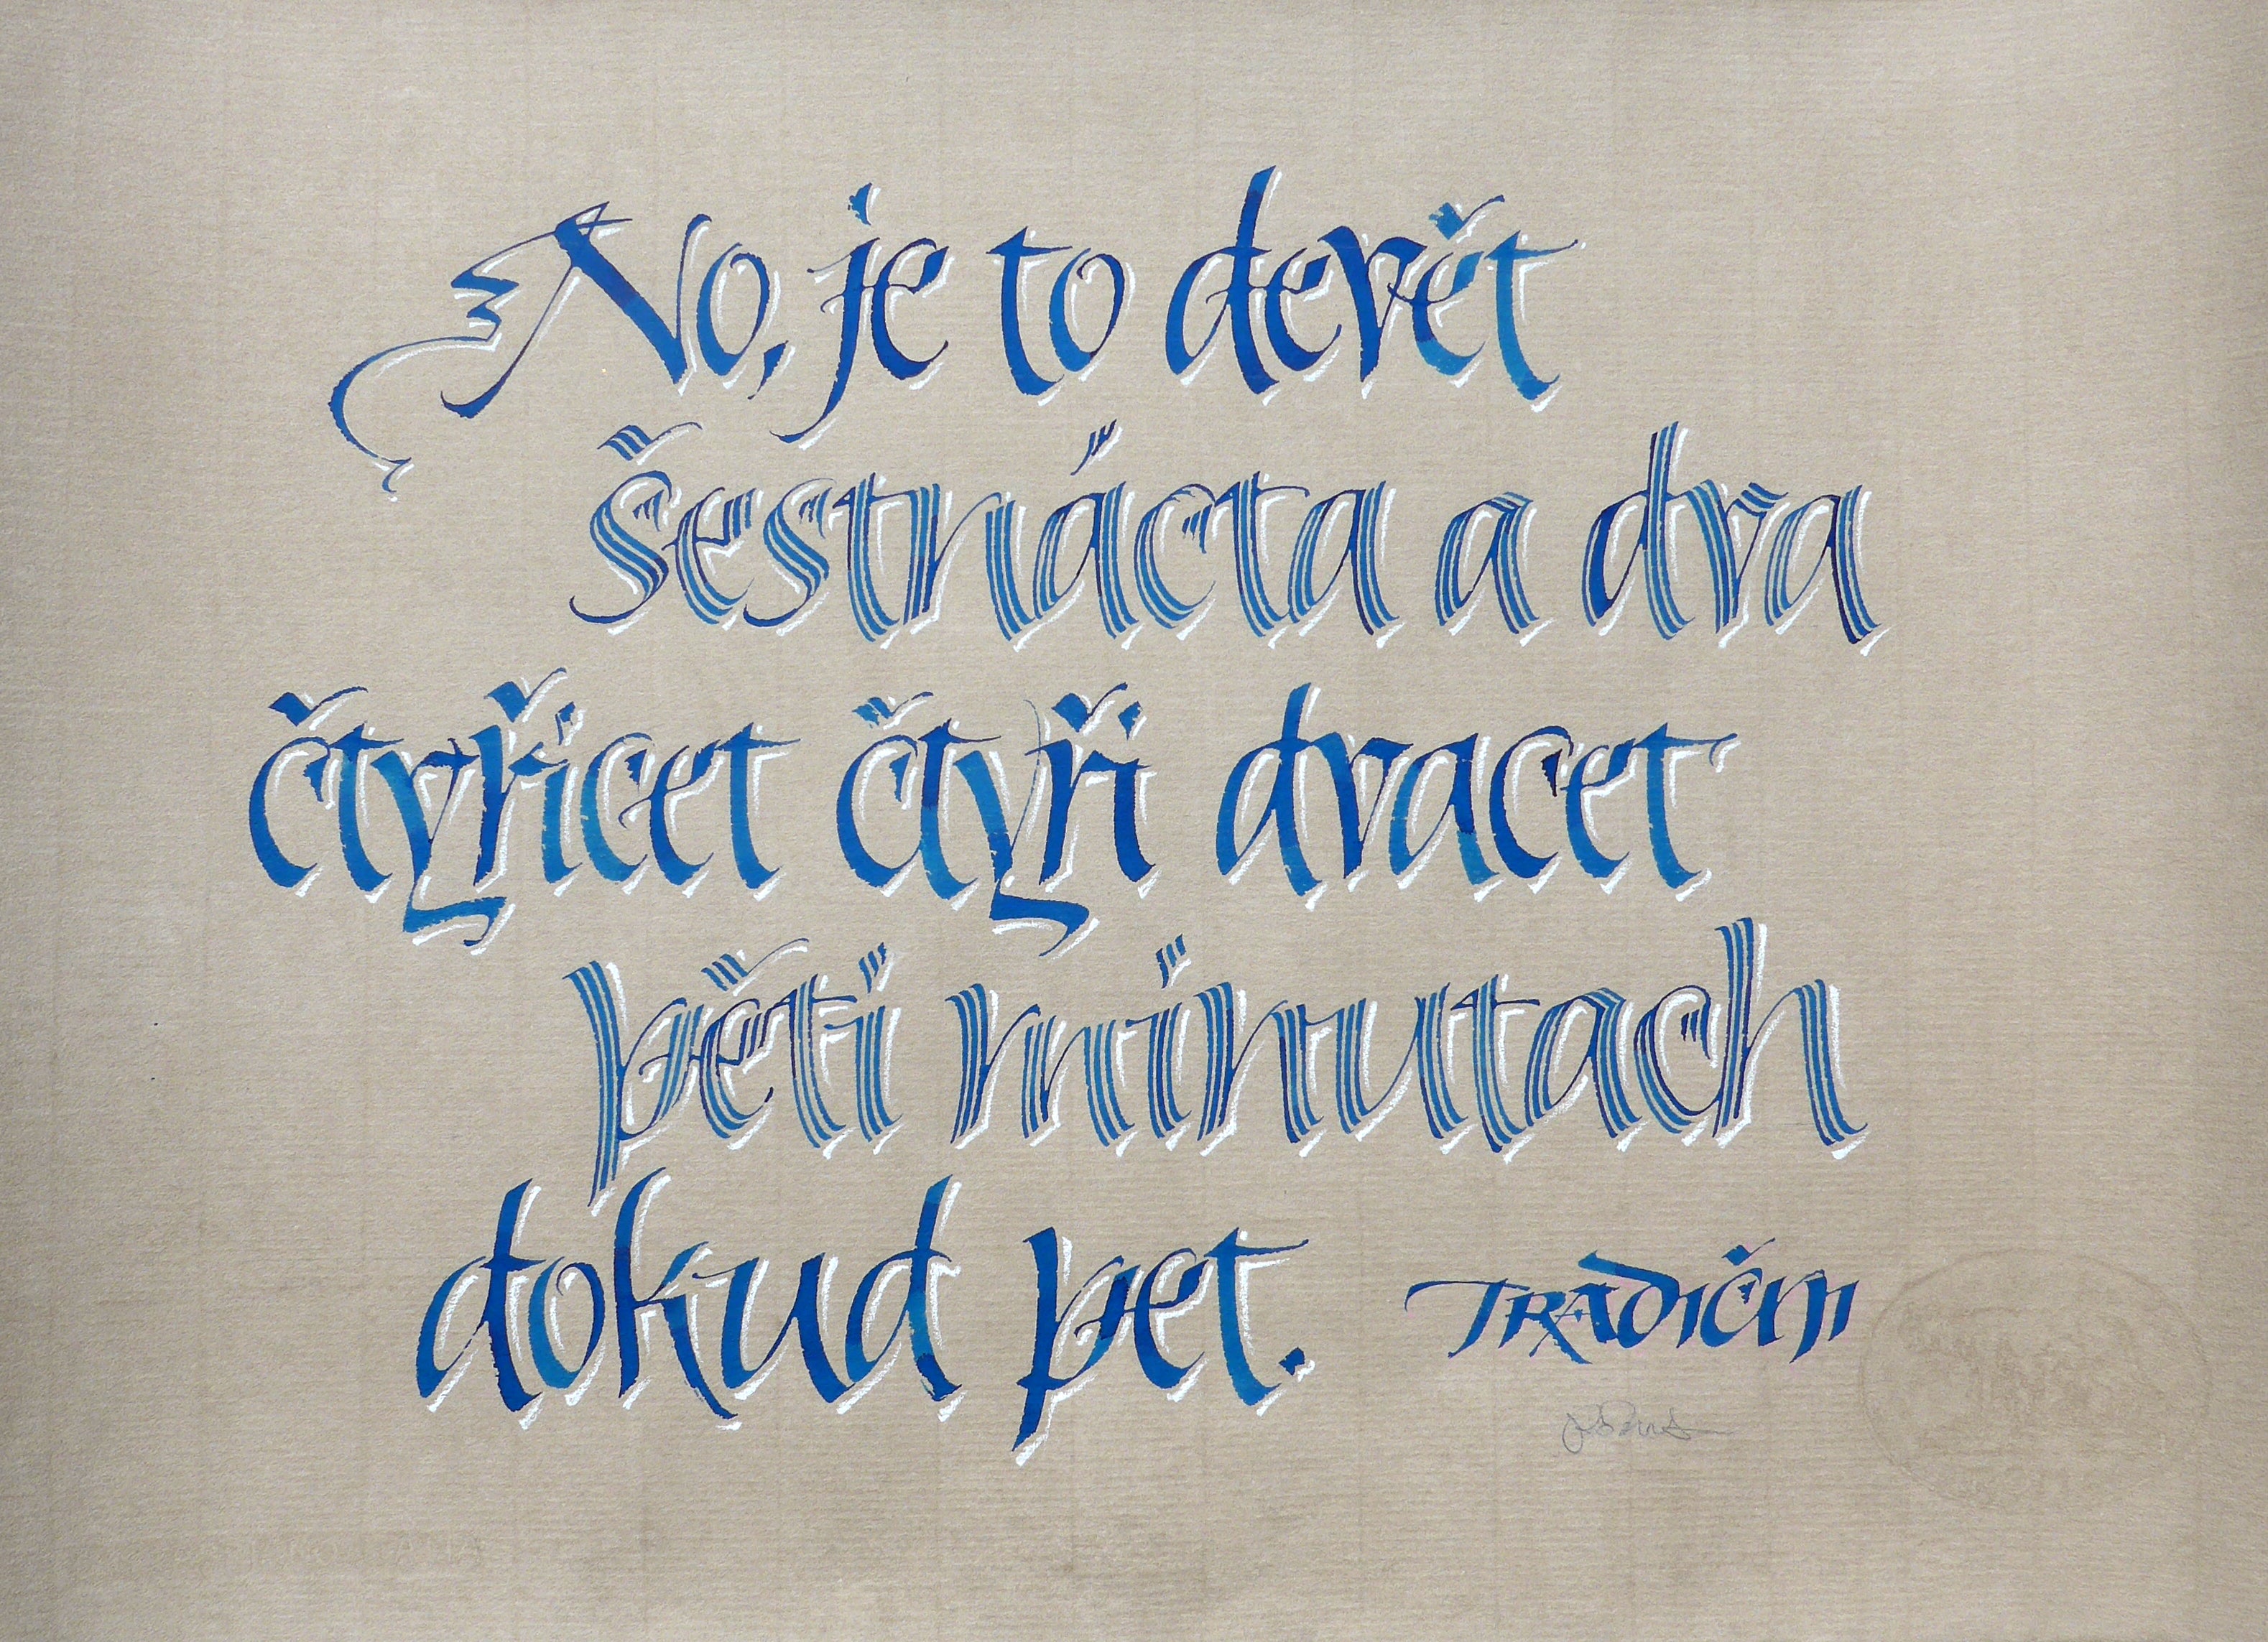 No, je to devět
šestnácta a dva
čtyřicet čtyři dvacet
pěti minutach
dokud pet.
TRADIČNI